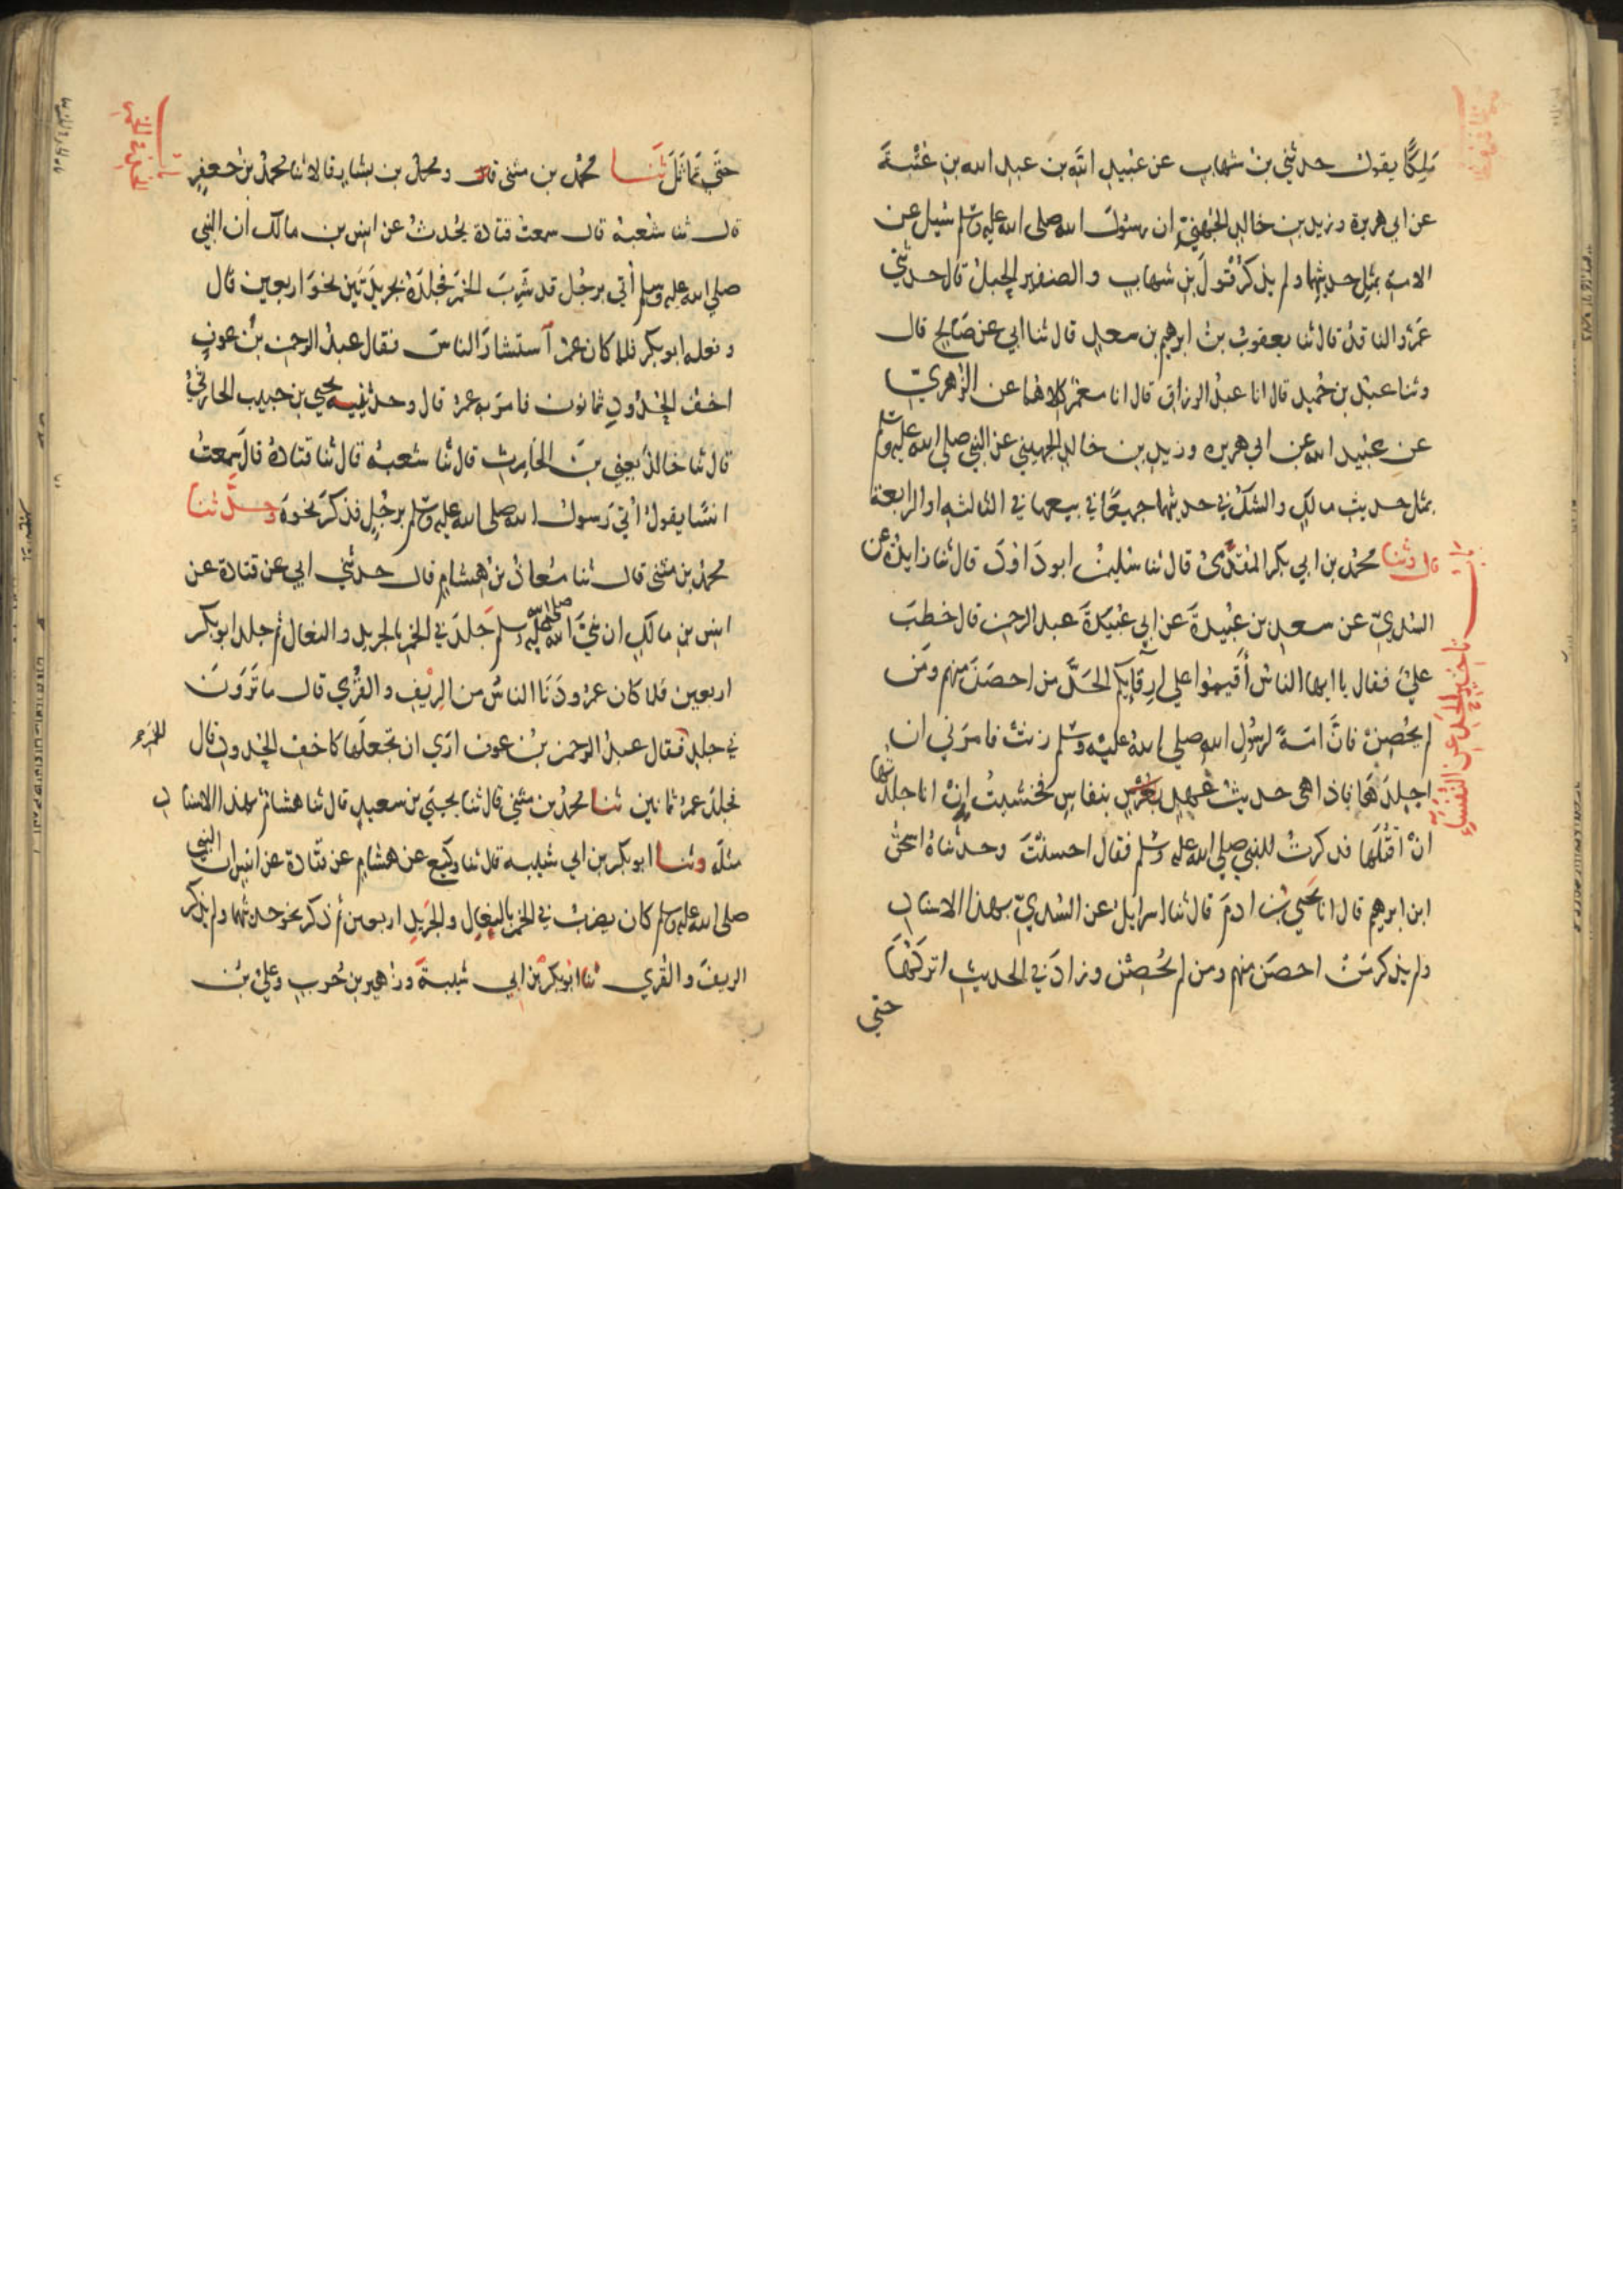 ملكًا يقول حدثني بن شهاب عن عبيد الله بن عبد الله بن عتبة
عن ابي هريرة وزيد بن خالد الجهني ان رسول الله صلى الله عليه وسلم سئل عن
الامة بمثل حديثهما ولم يذكر قول بن شهاب والضفير الحبل قال حدثني
عمرو الناقد قال ثنا يعقوب بن ابرهيم بن سعد قال ثنا ابي عن صالح قال
وثنا عبد بن حميد قال انا عبد الرزاق قال انا معمر كلاهما عن الزهري
عن عبيد الله عن ابي هريره وزيد بن خالد الجهيني عن النبي صلى الله عليه وسلم
بمثل حديث مالك والشك في حديثهما جميعًا في بيعها في الثالثه او الرابعة
قال وثنا محمد بن ابي بكر المقدمي قال ثنا سليمن ابو داود قال ثنا زايدة عن
باب تاخير الحد عن النفساء
السدي عن سعد بن عبيدة عن ابي عبد الرحمن قال خطب
علي فقال يا ايها الناس أقيموا على ارقايكم الحد من احصن منهم ومن
لم يحصن فان امة لرسول الله صلى الله عليه وسلم زنت فامرني ان
اجلدها فاذا هي حديث عهد بنفاس فخشيت ان انا جلدتها
ان اقتلها فذكرت للنبي صلى الله عليه وسلم فقال احسنت وحدثناه اسحق
ابن ابرهيم قال انا يحيي بن ادم قال ثنا اسرايل عن السدي بهذا الاسناد
ولم يذكر من احصن منهم ومن لم يحصن وزاد في الحديث اتركها
حتي
حتي تماثل ثنا محمد بن مثنى قال ومحمد بن بشار قالا ثنا محمد بن جعفر
قال ثنا شعبة قال سمعت قتادة يحدث عن انس بن مالك ان النبي
صلى الله عليه وسلم أتي برجل قد شرب الخمر فجلده بجريدتين نحو اربعين قال
وفعله ابو بكر فلما كان عمر استشار الناس فقال عبد الرحمن بن عوف
اخف الحدود ثمانون فامر به عمر قال وحدثنيه يحيي بن حبيب الحارثي
قال ثنا خالد يعني بن الحارث قال ثنا شعبه قال ثنا قتادة قال سمعت
انسًا يقول اتي رسول الله صلى الله عليه وسلم برجل فذكر نحوه وحدثنا
محمد بن مثنى قال ثنا معاذ بن هشام قال حدثني ابي عن قتادة عن
انس بن مالك ان نبي الله صلى الله عليه وسلم جلد في الخمر بالجريد والنعال ثم جلد ابو بكر
اربعين فلما كان عمر ودنا الناس من الريف والقرى قال ما ترون
في جلد الخمر فقال عبد الرحمن بن عوف ارى ان تجعلها كاخف الحدود قال
فجلد عمر ثمانين ثنا محمد بن مثني قال ثنا يحيي بن سعيد قال ثنا هشام بهذا الاسناد
مثله وثنا ابو بكر بن ابي شيبه قال ثنا وكيع عن هشام عن قتادة عن انس ان النبي
صلى الله عليه وسلم كان يضرب في الخمر بالنعال والجريد اربعين ثم ذكر نحو حديثهما ولم يذكر
الريف والقرى ثنا ابو بكر بن ابي شيبة وزهير بن حرب وعلي بن